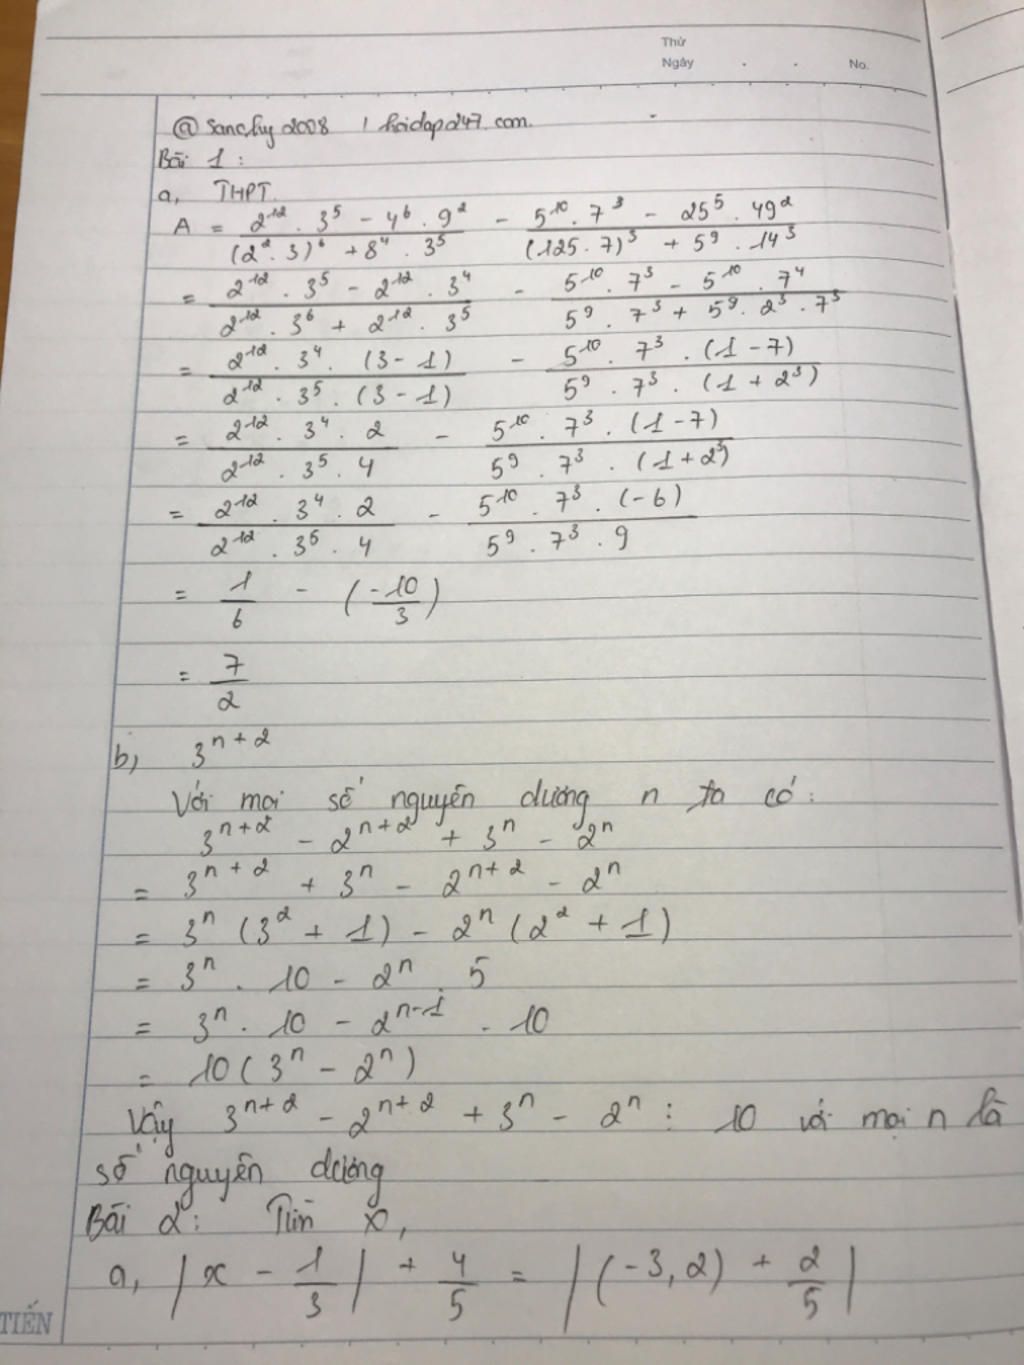 Thứ
Ngày . . No.
@ Sanchy2008 | hoidap247.com.
Bài 1 :
a, THPT.
A = (2^12 . 3^5 - 4^6 . 9^2)/((2^2 . 3)^6 + 8^4 . 3^5) - (5^10 . 7^3 - 25^5 . 49^2)/((125 . 7)^3 + 5^9 . 14^3)
= (2^12 . 3^5 - 2^12 . 3^4)/(2^12 . 3^6 + 2^12 . 3^5) - (5^10 . 7^3 - 5^10 . 7^4)/(5^9 . 7^3 + 5^9 . 2^3 . 7^3)
= (2^12 . 3^4 . (3 - 1))/(2^12 . 3^5 . (3 - 1)) - (5^10 . 7^3 . (1 - 7))/(5^9 . 7^3 . (1 + 2^3))
= (2^12 . 3^4 . 2)/(2^12 . 3^5 . 4) - (5^10 . 7^3 . (1 - 7))/(5^9 . 7^3 . (1 + 2^3))
= (2^12 . 3^4 . 2)/(2^12 . 3^5 . 4) - (5^10 . 7^3 . (-6))/(5^9 . 7^3 . 9)
= 1/6 - (-10/3)
= 7/2
b, 3^(n+2)
Với mọi số nguyên dương n ta có :
3^(n+2) - 2^(n+2) + 3^n - 2^n
= 3^(n+2) + 3^n - 2^(n+2) - 2^n
= 3^n (3^2 + 1) - 2^n (2^2 + 1)
= 3^n . 10 - 2^n . 5
= 3^n . 10 - 2^(n-1) . 10
= 10 (3^n - 2^n)
Vậy 3^(n+2) - 2^(n+2) + 3^n - 2^n ⋮ 10 với mọi n là
số nguyên dương
Bài 2 : Tìm x,
a, |x - 1/3| + 4/5 = |(-3,2) + 2/5|
TIẾN